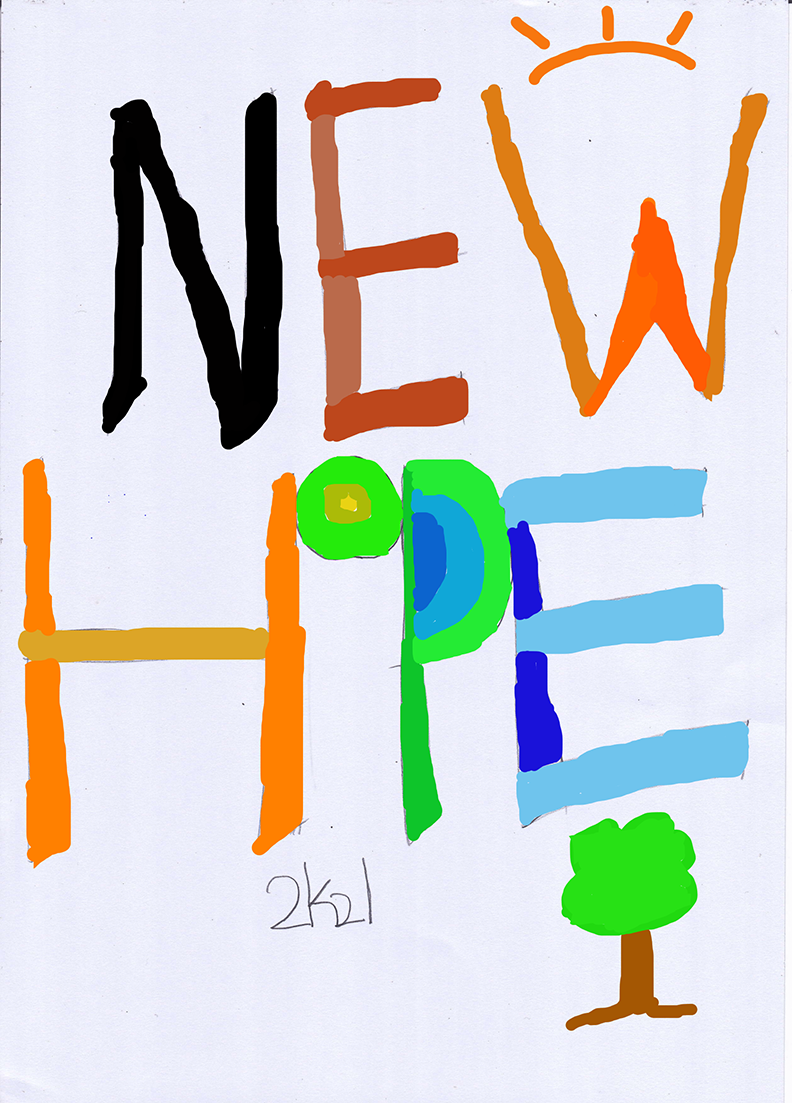 NEW
HOPE
2k21